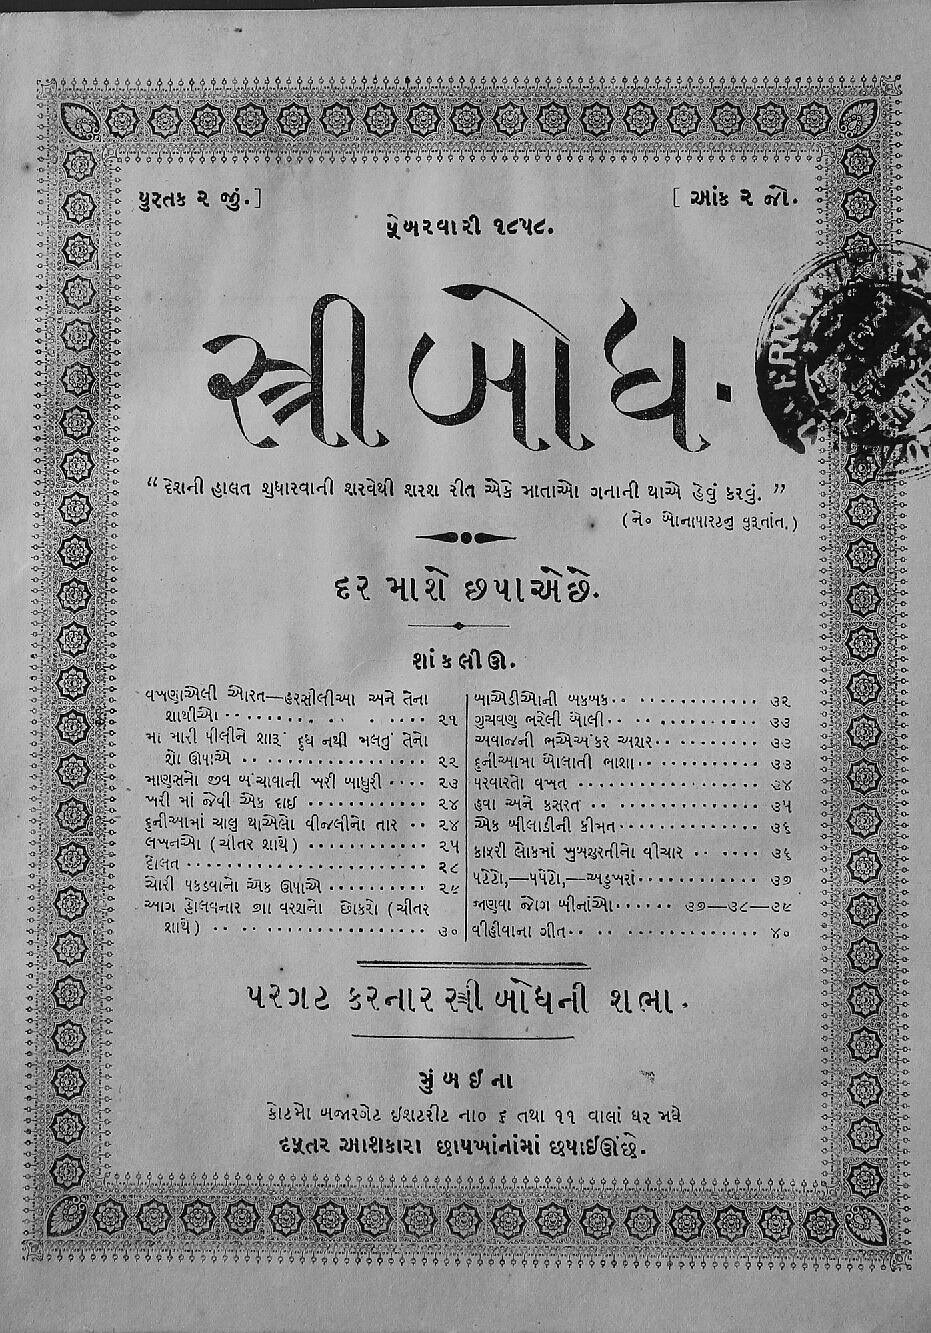 પુસ્તક ૨ જું.]
[ આંક ૨ જો.
ફેબરવારી ૧૮૫૮.
સ્ત્રીબોધ.
“ દેશની હાલત શુધારવાની શરવેથી શરશ રીત એકે માતાઓ ગનાની થાએ હેવું કરવું. ”
(ને૦ બોનાપારટનુ વ્રુતાંત.)
દર માશે છપાએછે.
શાંકલીઊ.
વખણાએલી ઓરત—હરસીલીઆ અને તેના
શાથીઓ .......... ૨૧
મા મારી પીલીને શારૂં દુધ નથી મલતું તેનો
શો ઊપાએ .......... ૨૨
માણસનો જીવ બંચાવાની ખરી બાધુરી .... ૨૩
ખરી માં જેવી એક દાઈ .......... ૨૪
દુનીઆમાં ચાલુ થાએલો વીજલીનો તાર .. ૨૪
લખનઓ (ચીતર શાથે) .......... ૨૫
દોલત .......... ૨૮
ચોરી પકડવાનો એક ઊપાએ .......... ૨૯
આગ હોલવનાર ૭ા વરશનો છોકરો (ચીતર
શાથે) .......... ૩૦
બાએડીઓની બકબક .......... ૩૨
ગુચવણ ભરેલી બોલી .......... ૩૩
અવાજની ભએઅંકર અશર .......... ૩૩
દુનીઆમા બોલાતી ભાશા .......... ૩૩
પરવારતો વખત .......... ૩૪
હવા અને કસરત .......... ૩૫
એક બીલાડીની કીમત .......... ૩૬
કાફરી લોકમાં ખુબસુરતીનો વીચાર .. .... ૩૬
પટેટો,—પપેટો,—અડુખરાં .......... ૩૭
જાણવા જોગ બીનાંઓ ...... ૩૭—૩૮—૩૯
વીહીવાના ગીત .......... ૪૦
પરગટ કરનાર સ્ત્રી બોધની શભા.
મુંબઈના
કોટમો બજારગેટ ઈશટરીટ ના૦ ૬ તથા ૧૧ વાલાં ઘર મધે
દફતર આશકારા છાપખાંનાંમાં છપાઈઊંછે.